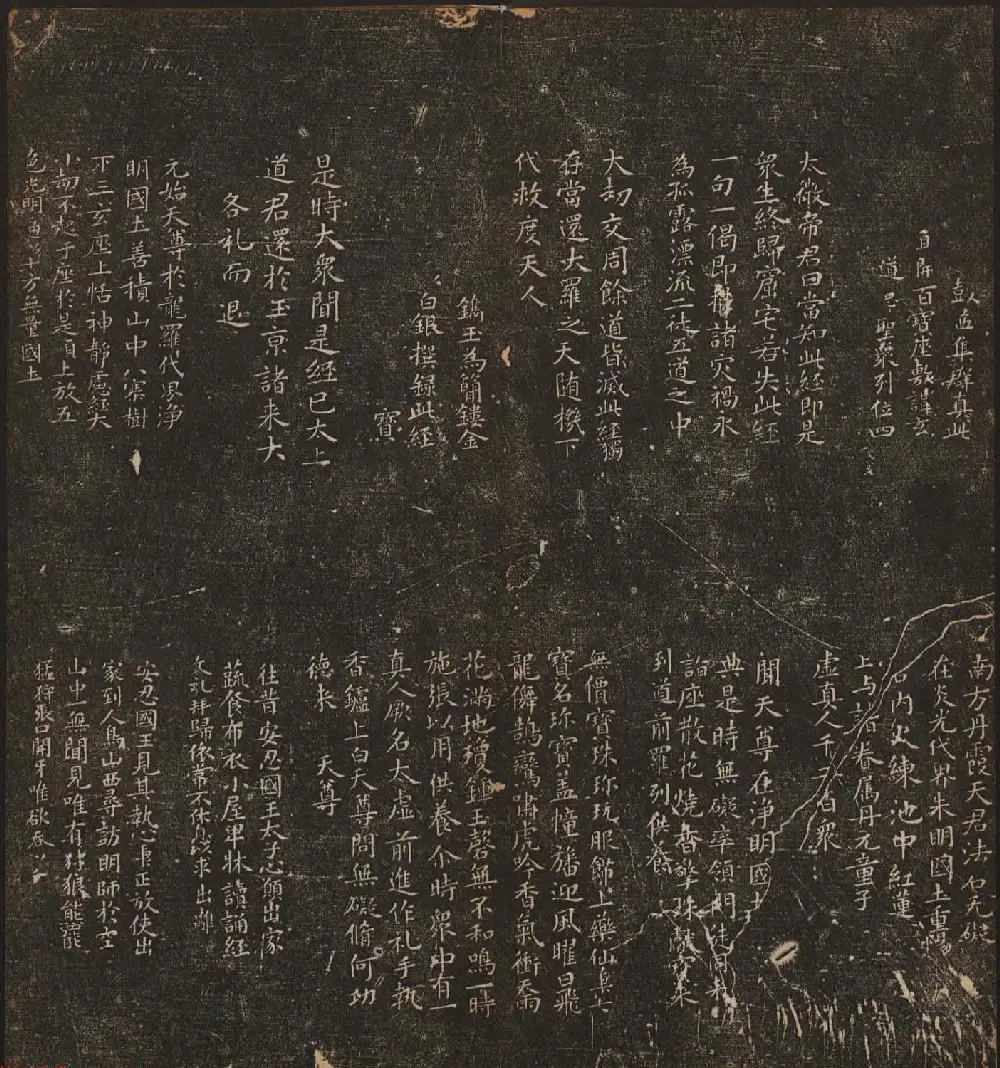 群真此
自開百寶座敷
道 聖眾列位四
太微帝君曰當知此經即是
眾生終歸窟宅若失此經
一句一偈即諸灾禍永
為孤露漂流二徒五道之中
大劫交周餘道皆滅此經獨
存當還大羅之天随機下
代救度天人
鐫玉為簡鏤金
白銀撰録此經
寶
是時大眾聞是經已太上
道君還於玉京諸来大
各礼而退
元始天尊於龍羅代界净
明國土善積山中八寨樹
下三玄座上恬神静慮
小劫不起于座於是自上放五
色光明十方無量國土
南方丹霞天君法名无礙
在炎光代界朱明國土
石内火練池中紅蓮
上与諸眷属丹元童子
虚真人千二百眾
聞天尊在净明國土
典是時無礙率領門徒
詣座散花燒香擎珠獻来
到道前羅列供養
無價寶珠珎玩服飾上藥仙
寶名珎寶盖幢旛迎風曜日飛
龍儛鵠鸞嘯虎吟香氣衝天
花滿地瓊玉磬無不和鳴一時
施張以用供養尒時眾中有一
真人厥名太虚前進作礼手執
香鑪上白天尊問無礙脩何功
德来 天尊
往昔安忍國王太子志願出家
蔬餐布衣小屋單牀讀誦經
文礼拜歸依常不休息以求出離
安忍國王見其執心事正放使出
家到人鳥山西尋訪明師於空
山中一無聞見唯有豺狼熊羆
猛狩張口開牙唯欲吞